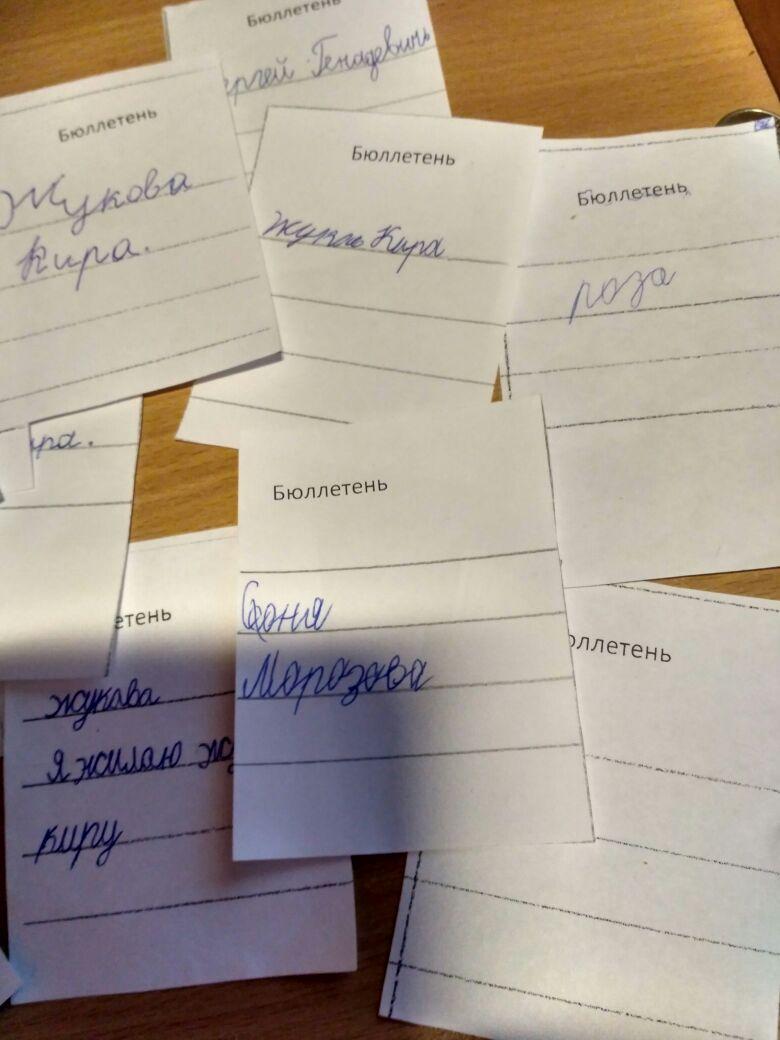 Бюллетень
Генадевичь
Бюллетень
Жукова
Кира.
Бюллетень
Кира
Бюллетень
роза
ира.
Бюллетень
Соня
Морозова
етень
жукова
я жилаю
киру
юллетень